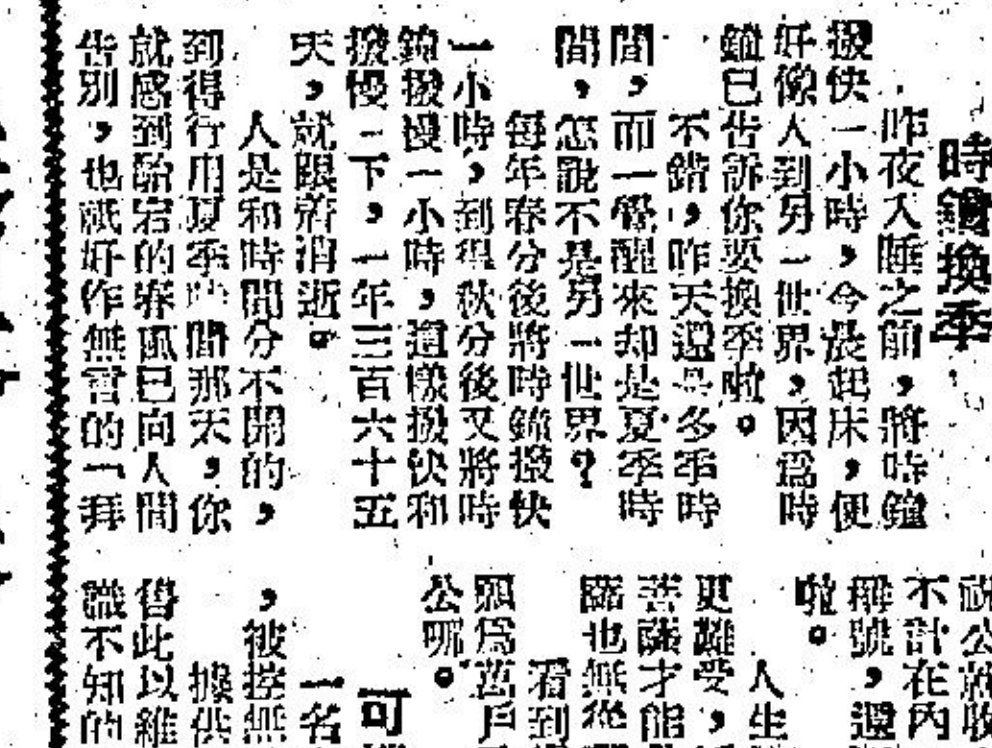 時鐘換季
昨夜入睡之前，將時鐘
撥快一小時，今晨起床，便
好像人到另一世界，因爲時
鐘已告訴你要換季啦。
不錯，昨天還是冬季時
間，而一覺醒來却是夏季時
間，怎說不是另一世界？
每年春分後將時鐘撥快
一小時，到得秋分後又將時
鐘撥慢一小時，這樣撥快和
撥慢一下，一年三百六十五
天，就跟着消逝。
人是和時間分不開的，
到得行用夏季時間那天，你
就感到駘宕的春風已向人間
告別，也祇好作無言的一拜
說公
不計在內
稱號，還
啦。
人生
更難受，
菩薩才能
薩也無從
看到
爲萬戶
公哪。
可
一名
，被控無
據供
此以維
識不知的